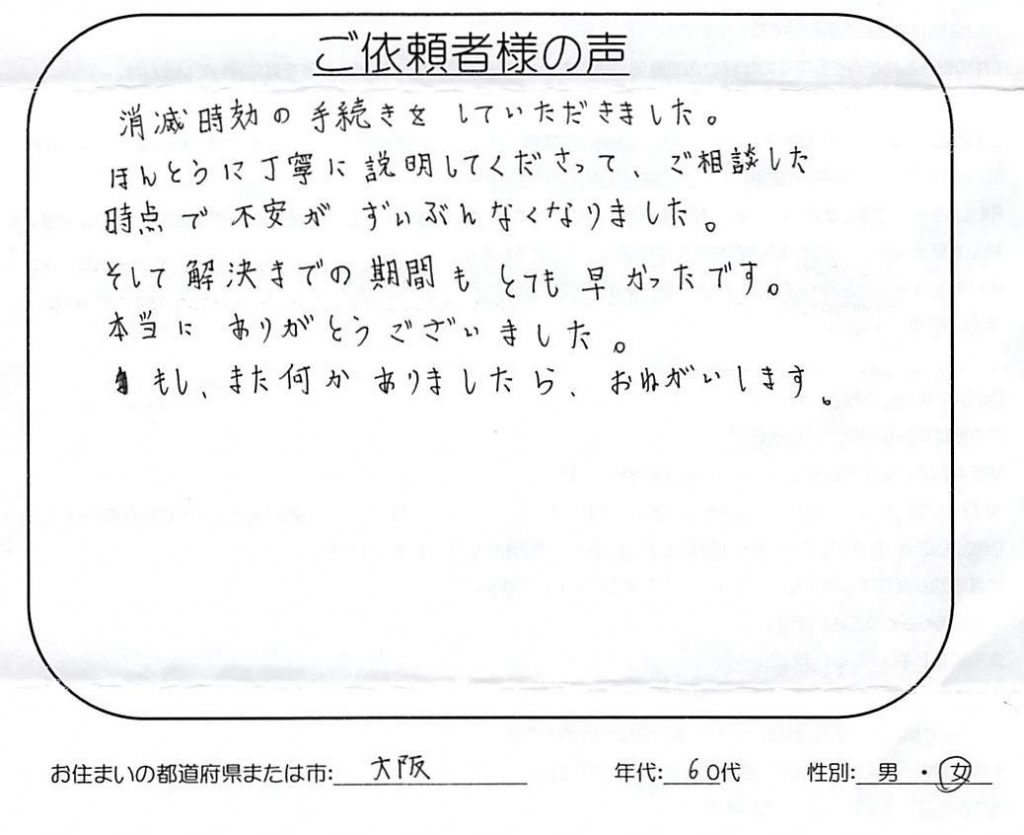 ご依頼者様の声
消滅時効の手続きをしていただきました。
ほんとうに丁寧に説明してくださって、ご相談した
時点で不安がずいぶんなくなりました。
そして解決までの期間もとても早かったです。
本当にありがとうございました。
もし、また何かありましたら、おねがいします。
お住まいの都道府県または市: 大阪 年代: 60代 性別: 男 ・ 女